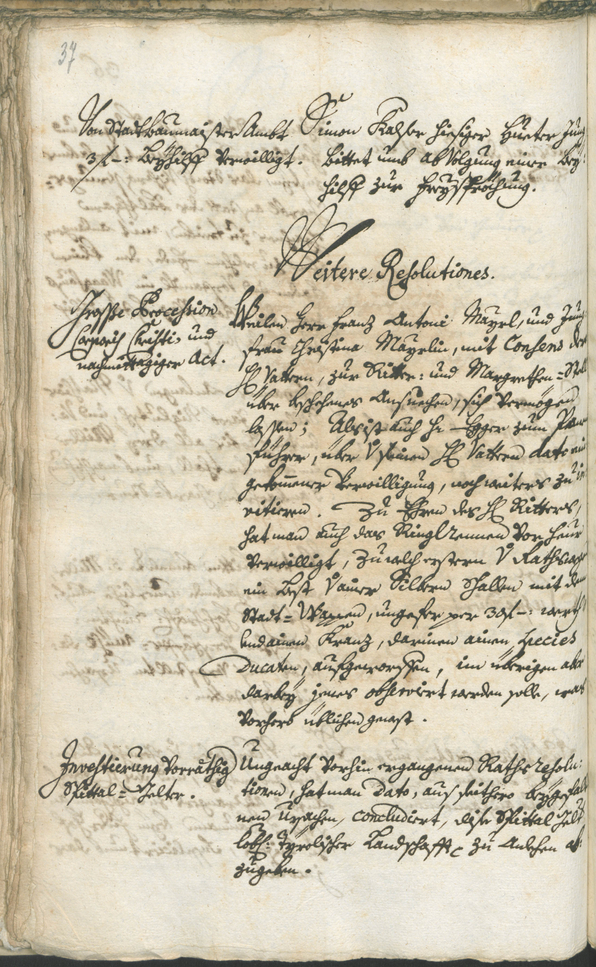 37
Von Stadtbaumaister Ambt
3 f -: Beyhilff verwilligt.
Simon Kalser hiesiger Hueter Jung
bittet umb abvolgung einer Bey-
hilff zur Freysprechung.
Weitere Resolutiones.
Grosse Procession
Corporis Christi und
nachmittägiger Act.
Weilen Herr Franz Antoni Mayrl, und Jung
frau Christina Mayrlin, mit Consens der
H Vättern, zur Ritter= und Margrethen=Stell
über beschehenes Ansuechen, sich vermögen
lassen; Als ist auch H Egger zum
führer, über seinen H Vattern dato ein
gekommener verwilligung, noch weiters zu in
vitieren. Zu Ehren des H Ritters,
hat man auch das Ringlrennen vor heur
verwilligt, zu welch erstern
ein Best Silbern Schallen mit dem
Stadt=Wappen, ungefer per 30 f -: werth
und ainen Kranz, darinen ainen Species
Ducaten, aufgeworffen, im übrigen aber
darbey jenes observiert werden solle, was
vorhero üblichen gewest.
Investierung vorräthig
Spittal=Gelter.
Ungeacht vorhin ergangenen Raths resolu-
tionen, hat man dato, aus seithero beygefall
nen Ursachen, concludiert, dise Spittal Gelt
löbl: Tyrolischer Landschafft zu Anlehen ab-
zugeben.